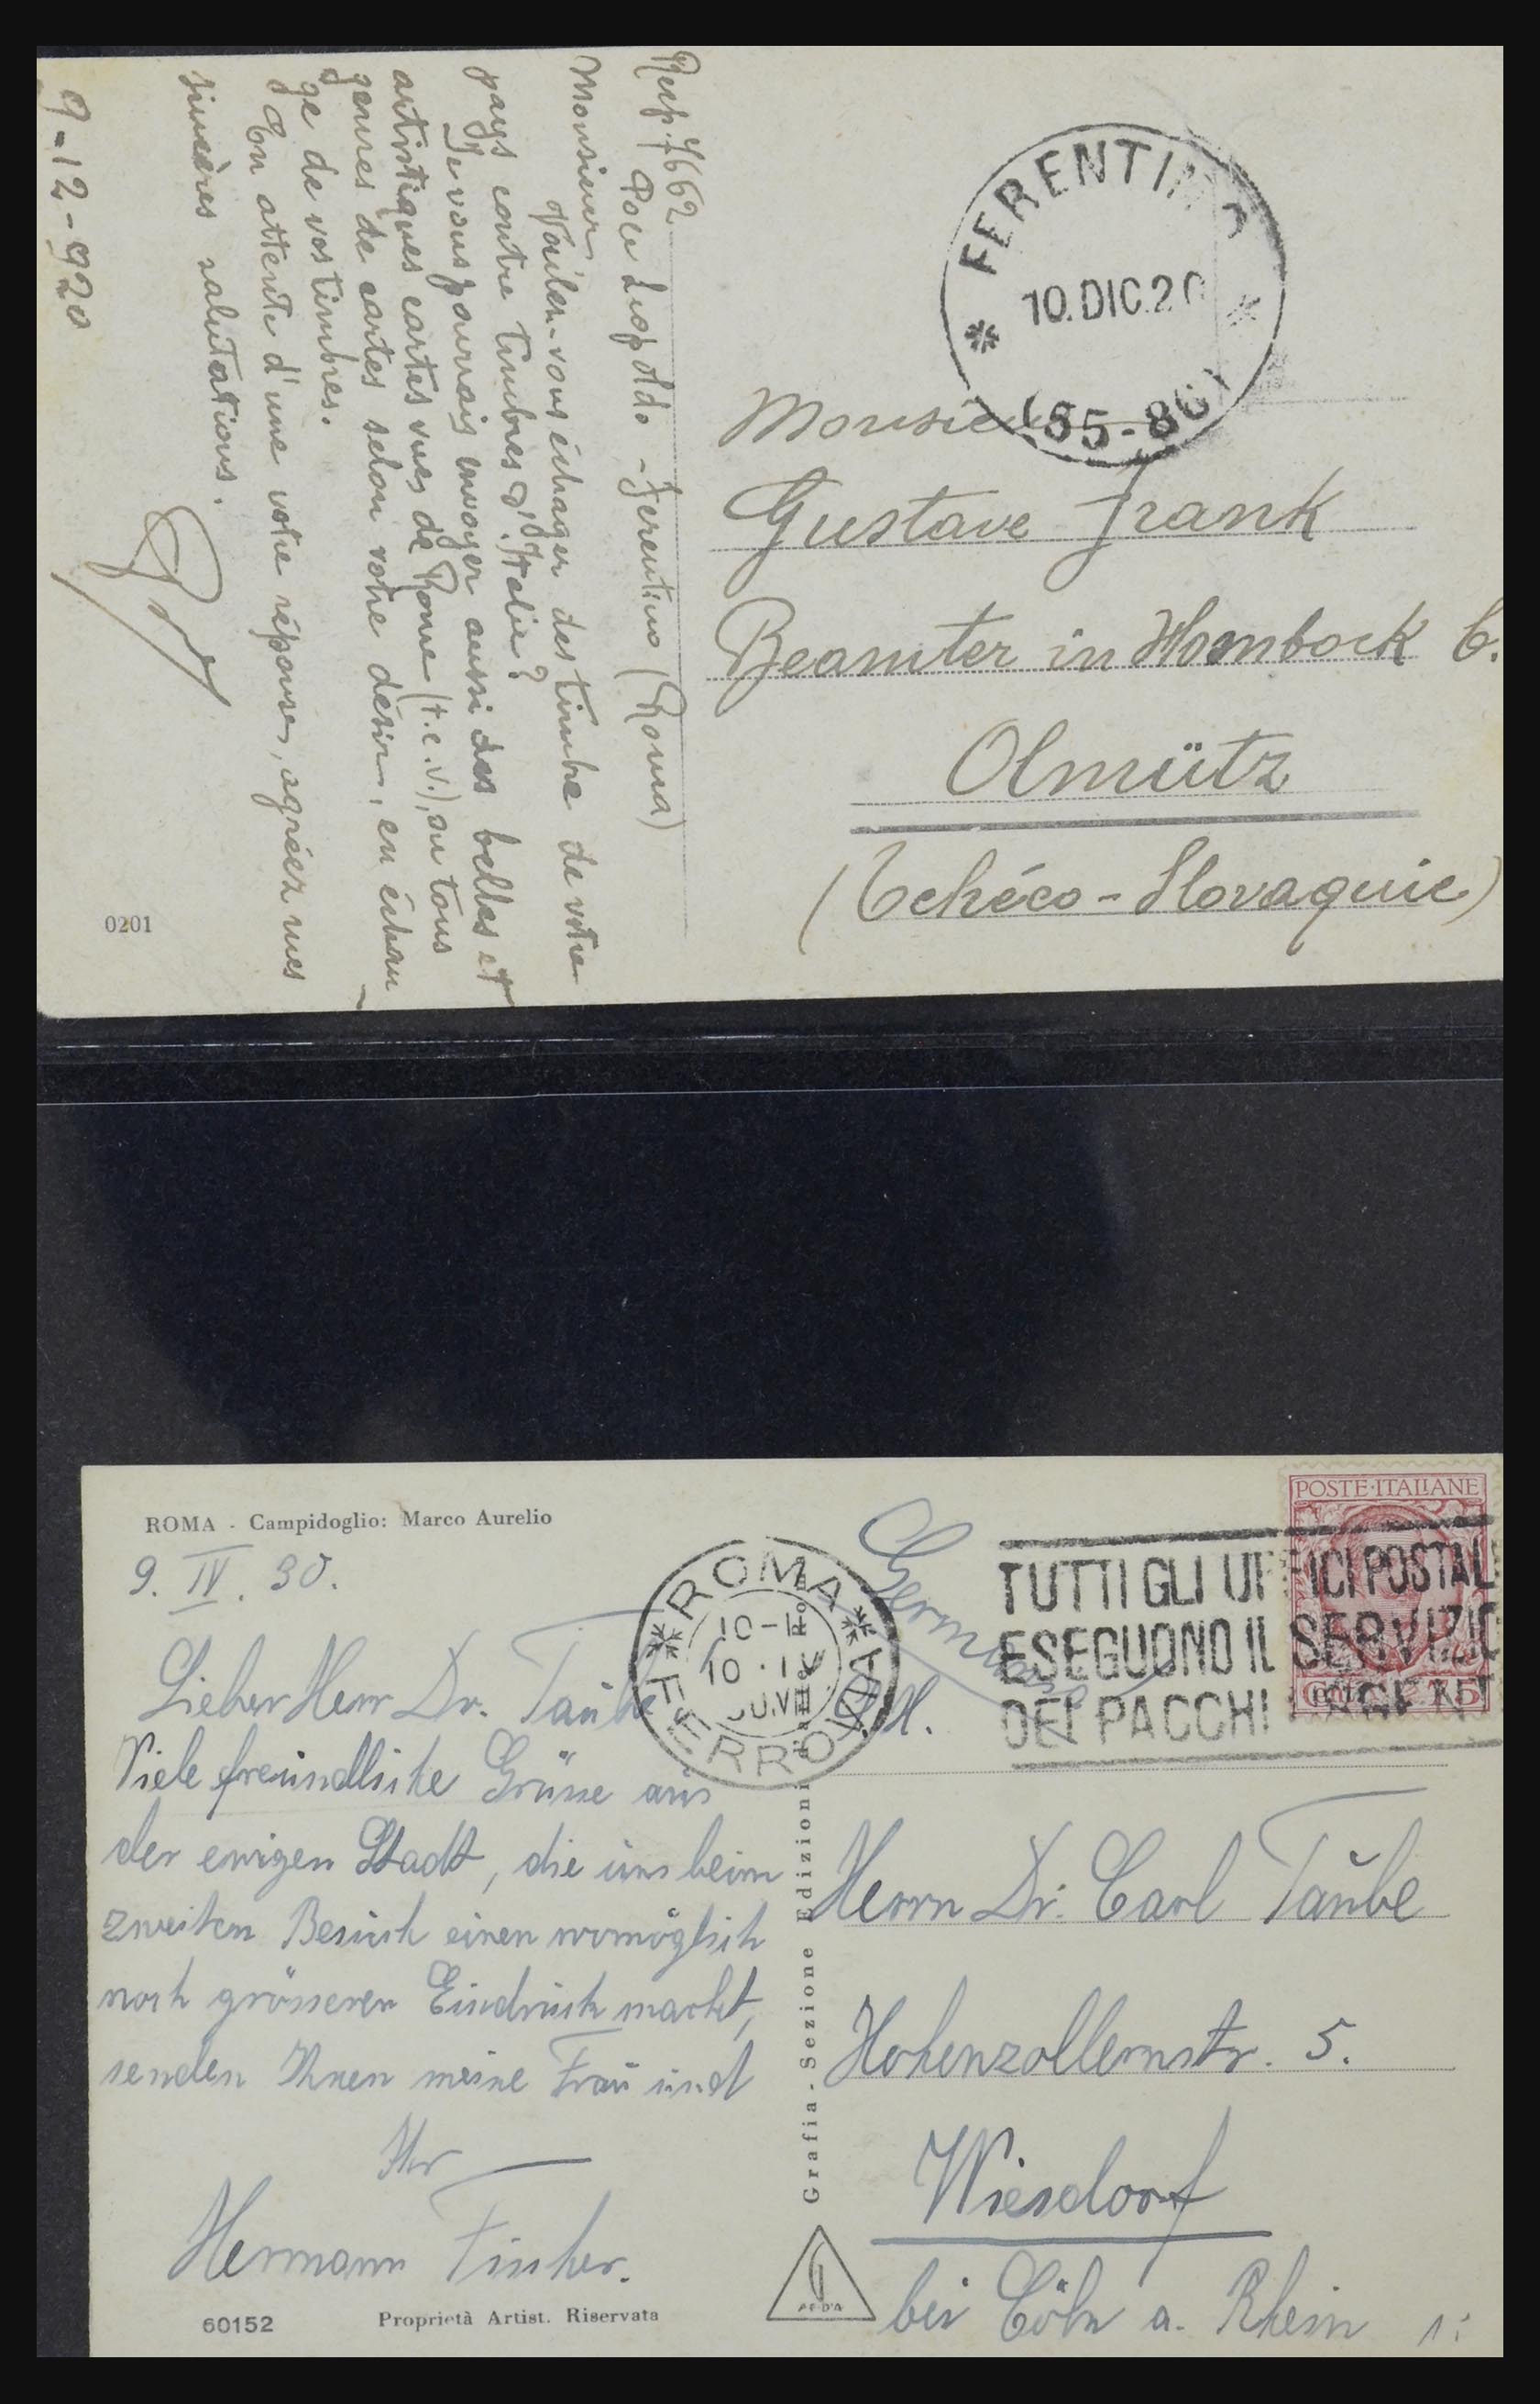 Resp. 7662
Poce Liopoldo - Ferentino (Roma)
Monsieur
Voulez-vous échager des timbre de votre
pays contre timbres d'Italie?
Je vous pourrais envoyer aussi des belles et
artistiques cartes vues de Rome (t.c.v.), ou tous
genres de cartes selon votre désir, en échan
ge de vos timbres.
En attente d'une votre réponse, agréez mes
sincères salutations.
9-12-920
0201
FERENTINO
10.DIC.20
(65-80)
Monsieur
Gustave Frank
Beamter in Hombock b.
Olmütz
(Tchéco-Slovaquie)
ROMA - Campidoglio: Marco Aurelio
9. IV. 30.
Lieber Herr Dr. Taube
Viele freundliche Grüsse aus
der ewigen Stadt, die uns beim
zweiten Besuch einen womöglich
noch grösseren Eindruck macht,
senden Ihnen meine Frau und
Ihr
Hermann Fischer.
60152
Proprietà Artist. Riservata
ROMA
10-11
10·IV
FERROVIA
Grafia - Sezione Edizioni
Germania
TUTTI GLI UFFICI POSTALI
ESEGUONO IL SERVIZIO
DEI PACCHI
POSTE·ITALIANE
Herrn Dr. Carl Taube
Hohenzollernstr. 5.
Wiesdorf
bei Cöln a. Rhein